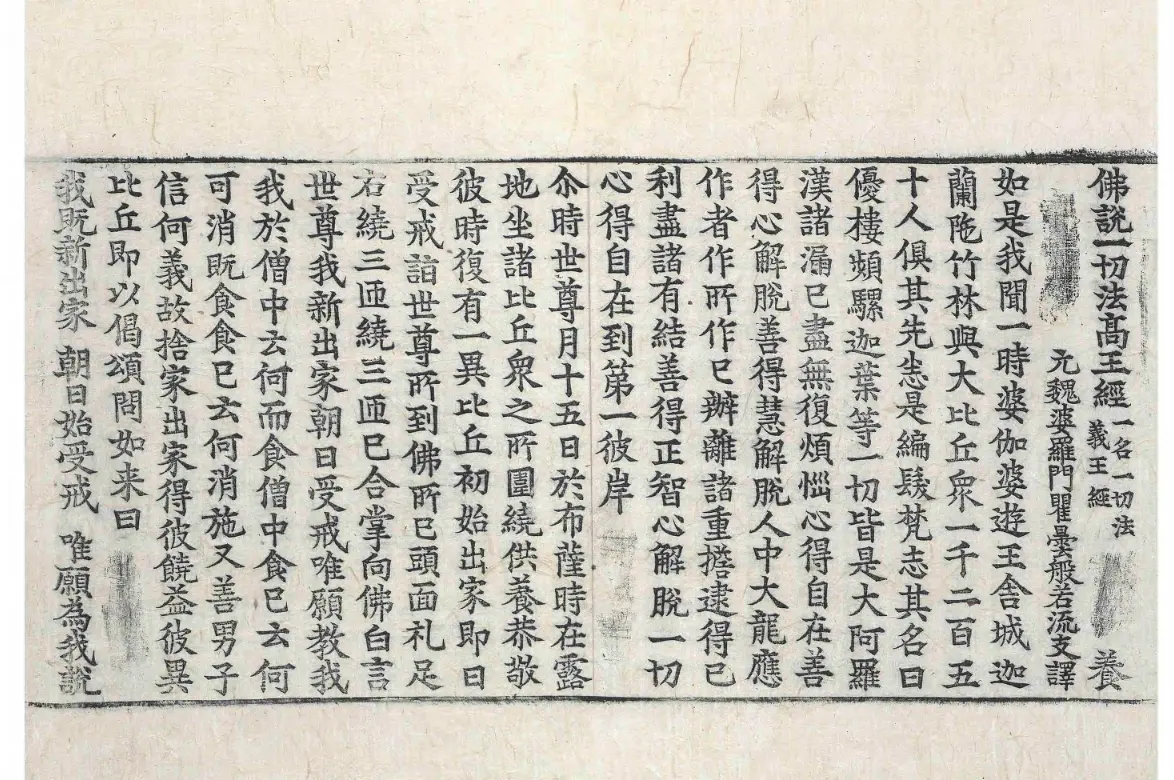 佛說一切法高王經 一名一切法義王經 養
元魏婆羅門瞿曇般若流支譯
如是我聞一時婆伽婆遊王舍城迦
蘭陁竹林與大比丘衆一千二百五
十人俱其先悉是編髮梵志其名曰
優樓頻騾迦葉等一切皆是大阿羅
漢諸漏已盡無復煩惱心得自在善
得心解脫善得慧解脫人中大龍應
作者作所作已辦離諸重擔逮得已
利盡諸有結善得正智心解脫一切
心得自在到第一彼岸
尒時世尊月十五日於布薩時在露
地坐諸比丘衆之所圍繞供養恭敬
彼時復有一異比丘初始出家即日
受戒詣世尊所到佛所已頭面礼足
右繞三匝繞三匝已合掌向佛白言
世尊我新出家朝日受戒唯願教我
我於僧中云何而食僧中食已云何
可消既食食已云何消施又善男子
信何義故捨家出家得彼饒益彼異
比丘即以偈頌問如来曰
我既新出家 朝日始受戒 唯願為我說